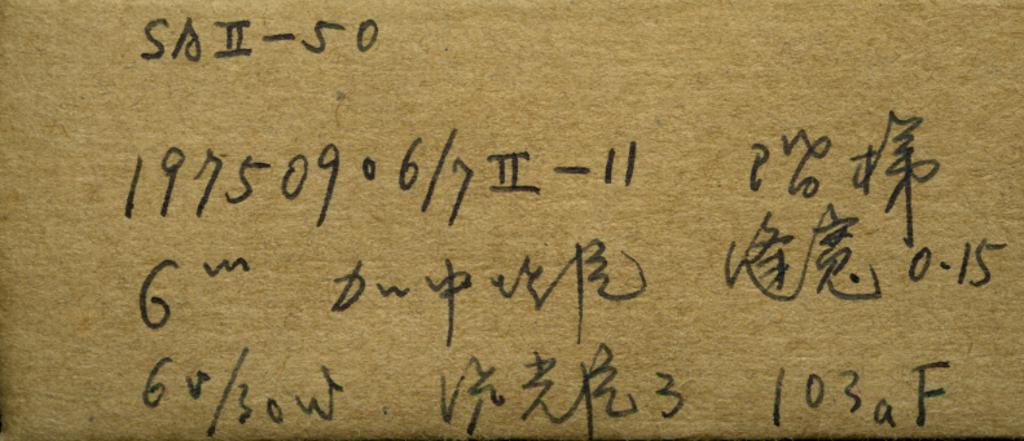 SA II-50
19750906/7 II-11 階梯
6ᵐ 加中 缝寬 0.15
6V/30W 光 3 103aF